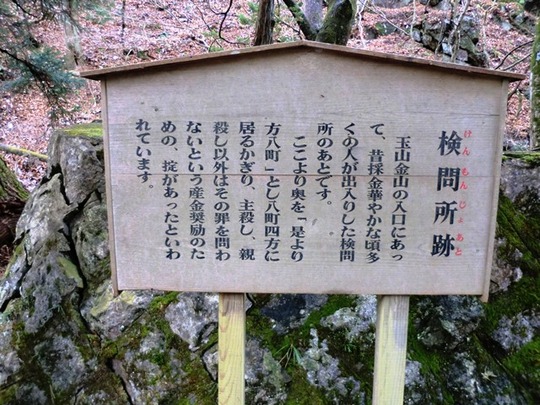 検問所跡
けんもんじょあと
玉山金山の入口にあっ
て、昔採金華やかな頃多
くの人が出入りした検問
所のあとです。
ここより奥を「是より
方八町」とし八町四方に
居るかぎり、主殺し、親
殺し以外はその罪を問わ
ないという産金奨励のた
めの、掟があったといわ
れています。